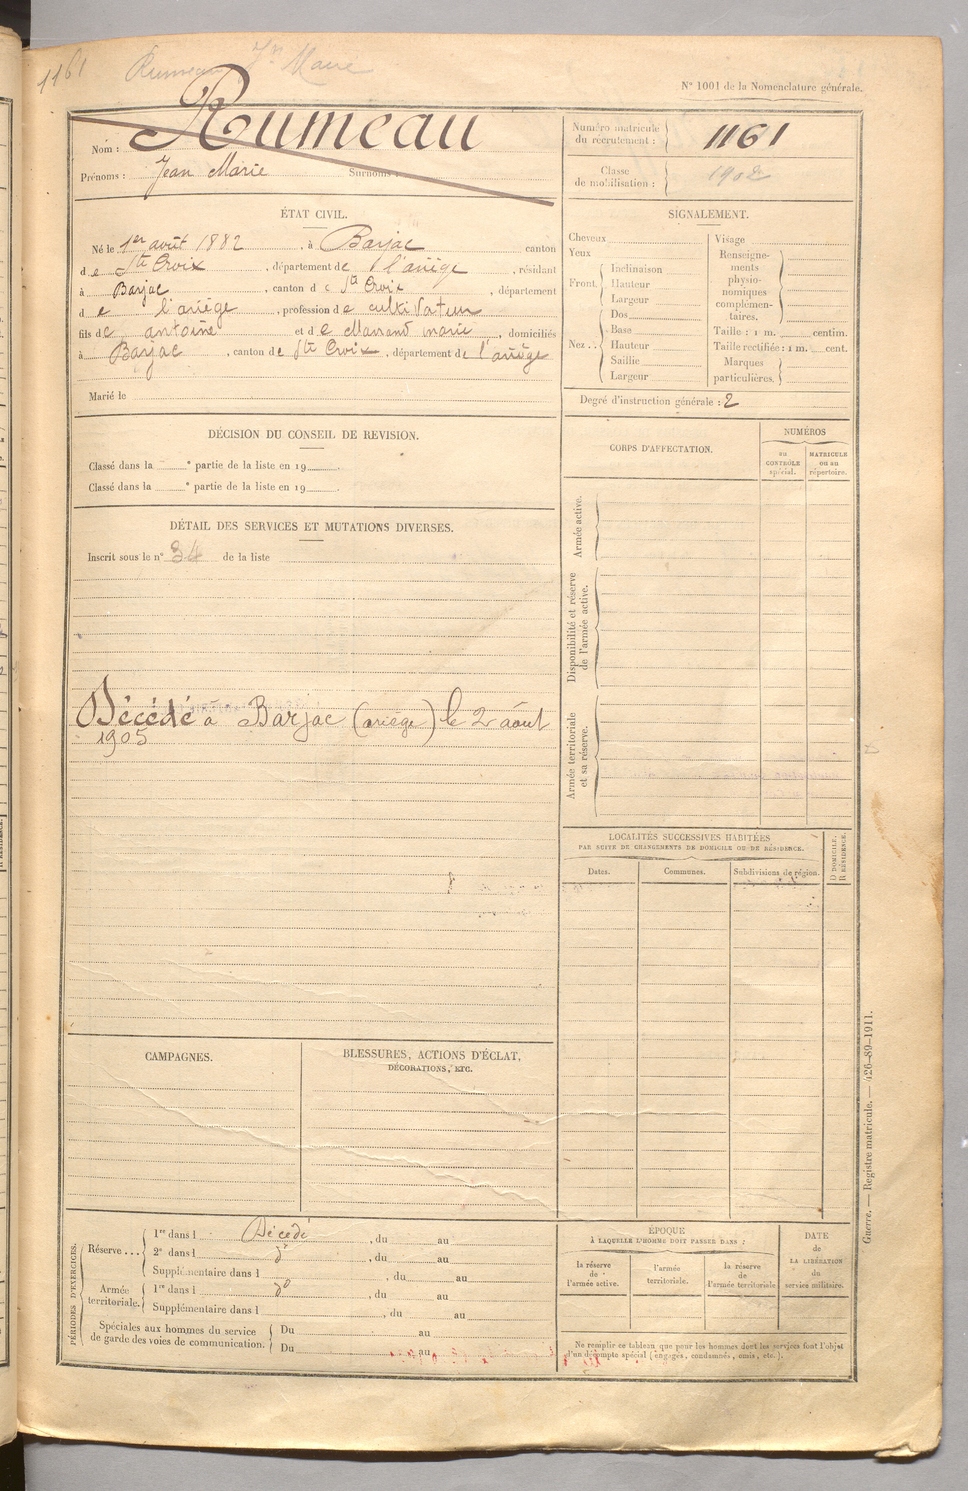 1161 Rumeau Jn Marie
N° 1001 de la Nomenclature générale.
Nom : Rumeau
Prénoms : Jean Marie Surnoms :
Numéro matricule du recrutement : 1161
Classe de mobilisation : 1902
ÉTAT CIVIL.
Né le 1er août 1882, à Barjac canton
de Ste Croix, département de l'ariège, résidant
à Barjac, canton de Ste Croix, département
de l'ariège, profession de cultivateur
fils de antoine et de Marrand marie, domiciliés
à Barjac, canton de Ste Croix, département de l'ariège
Marié le
SIGNALEMENT.
Cheveux
Yeux
Front. Inclinaison
Hauteur
Largeur
Nez.. Dos
Base
Hauteur
Saillie
Largeur
Visage
Renseigne-
ments
physio-
nomiques
complémen-
taires.
Taille : 1 m. centim.
Taille rectifiée : 1 m. cent.
Marques
particulières.
Degré d'instruction générale : 2
DÉCISION DU CONSEIL DE REVISION.
Classé dans la e partie de la liste en 19 .
Classé dans la e partie de la liste en 19 .
CORPS D'AFFECTATION.
NUMÉROS
au CONTRÔLE spécial.
MATRICULE ou au répertoire.
Armée active.
Disponibilité et réserve de l'armée active.
Armée territoriale et sa réserve.
DÉTAIL DES SERVICES ET MUTATIONS DIVERSES.
Inscrit sous le n° 34 de la liste
Décédé à Barjac (ariège) le 2 août
1905
LOCALITÉS SUCCESSIVES HABITÉES
PAR SUITE DE CHANGEMENTS DE DOMICILE OU DE RÉSIDENCE.
Dates.
Communes.
Subdivisions de région.
D DOMICILE.
R RÉSIDENCE.
CAMPAGNES.
BLESSURES, ACTIONS D'ÉCLAT,
DÉCORATIONS, ETC.
PÉRIODES D'EXERCICES.
Réserve ... 1re dans l Décédé, du au
2e dans l do, du au
Supplémentaire dans l , du au
Armée territoriale. 1re dans l do, du au
Supplémentaire dans l , du au
Spéciales aux hommes du service
de garde des voies de communication.
Du au
Du au
ÉPOQUE
À LAQUELLE L'HOMME DOIT PASSER DANS :
la réserve de l'armée active.
l'armée territoriale.
la réserve de l'armée territoriale
DATE
de
LA LIBÉRATION
du
service militaire.
Ne remplir ce tableau que pour les hommes dont les services font l'objet
d'un décompte spécial (engagés, condamnés, omis, etc.).
Guerre. — Registre matricule. — 426-89-1911.